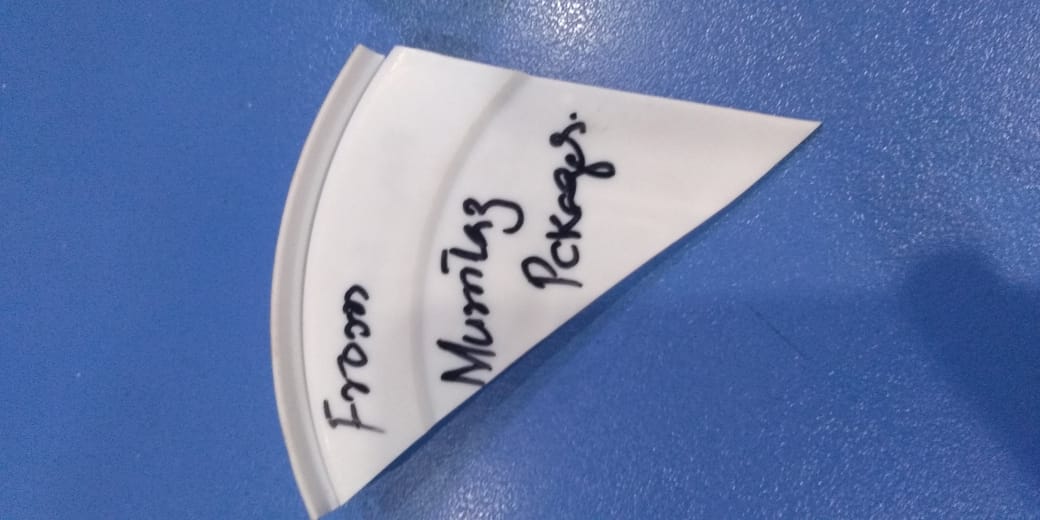 From
Mumtaz
Pckages.